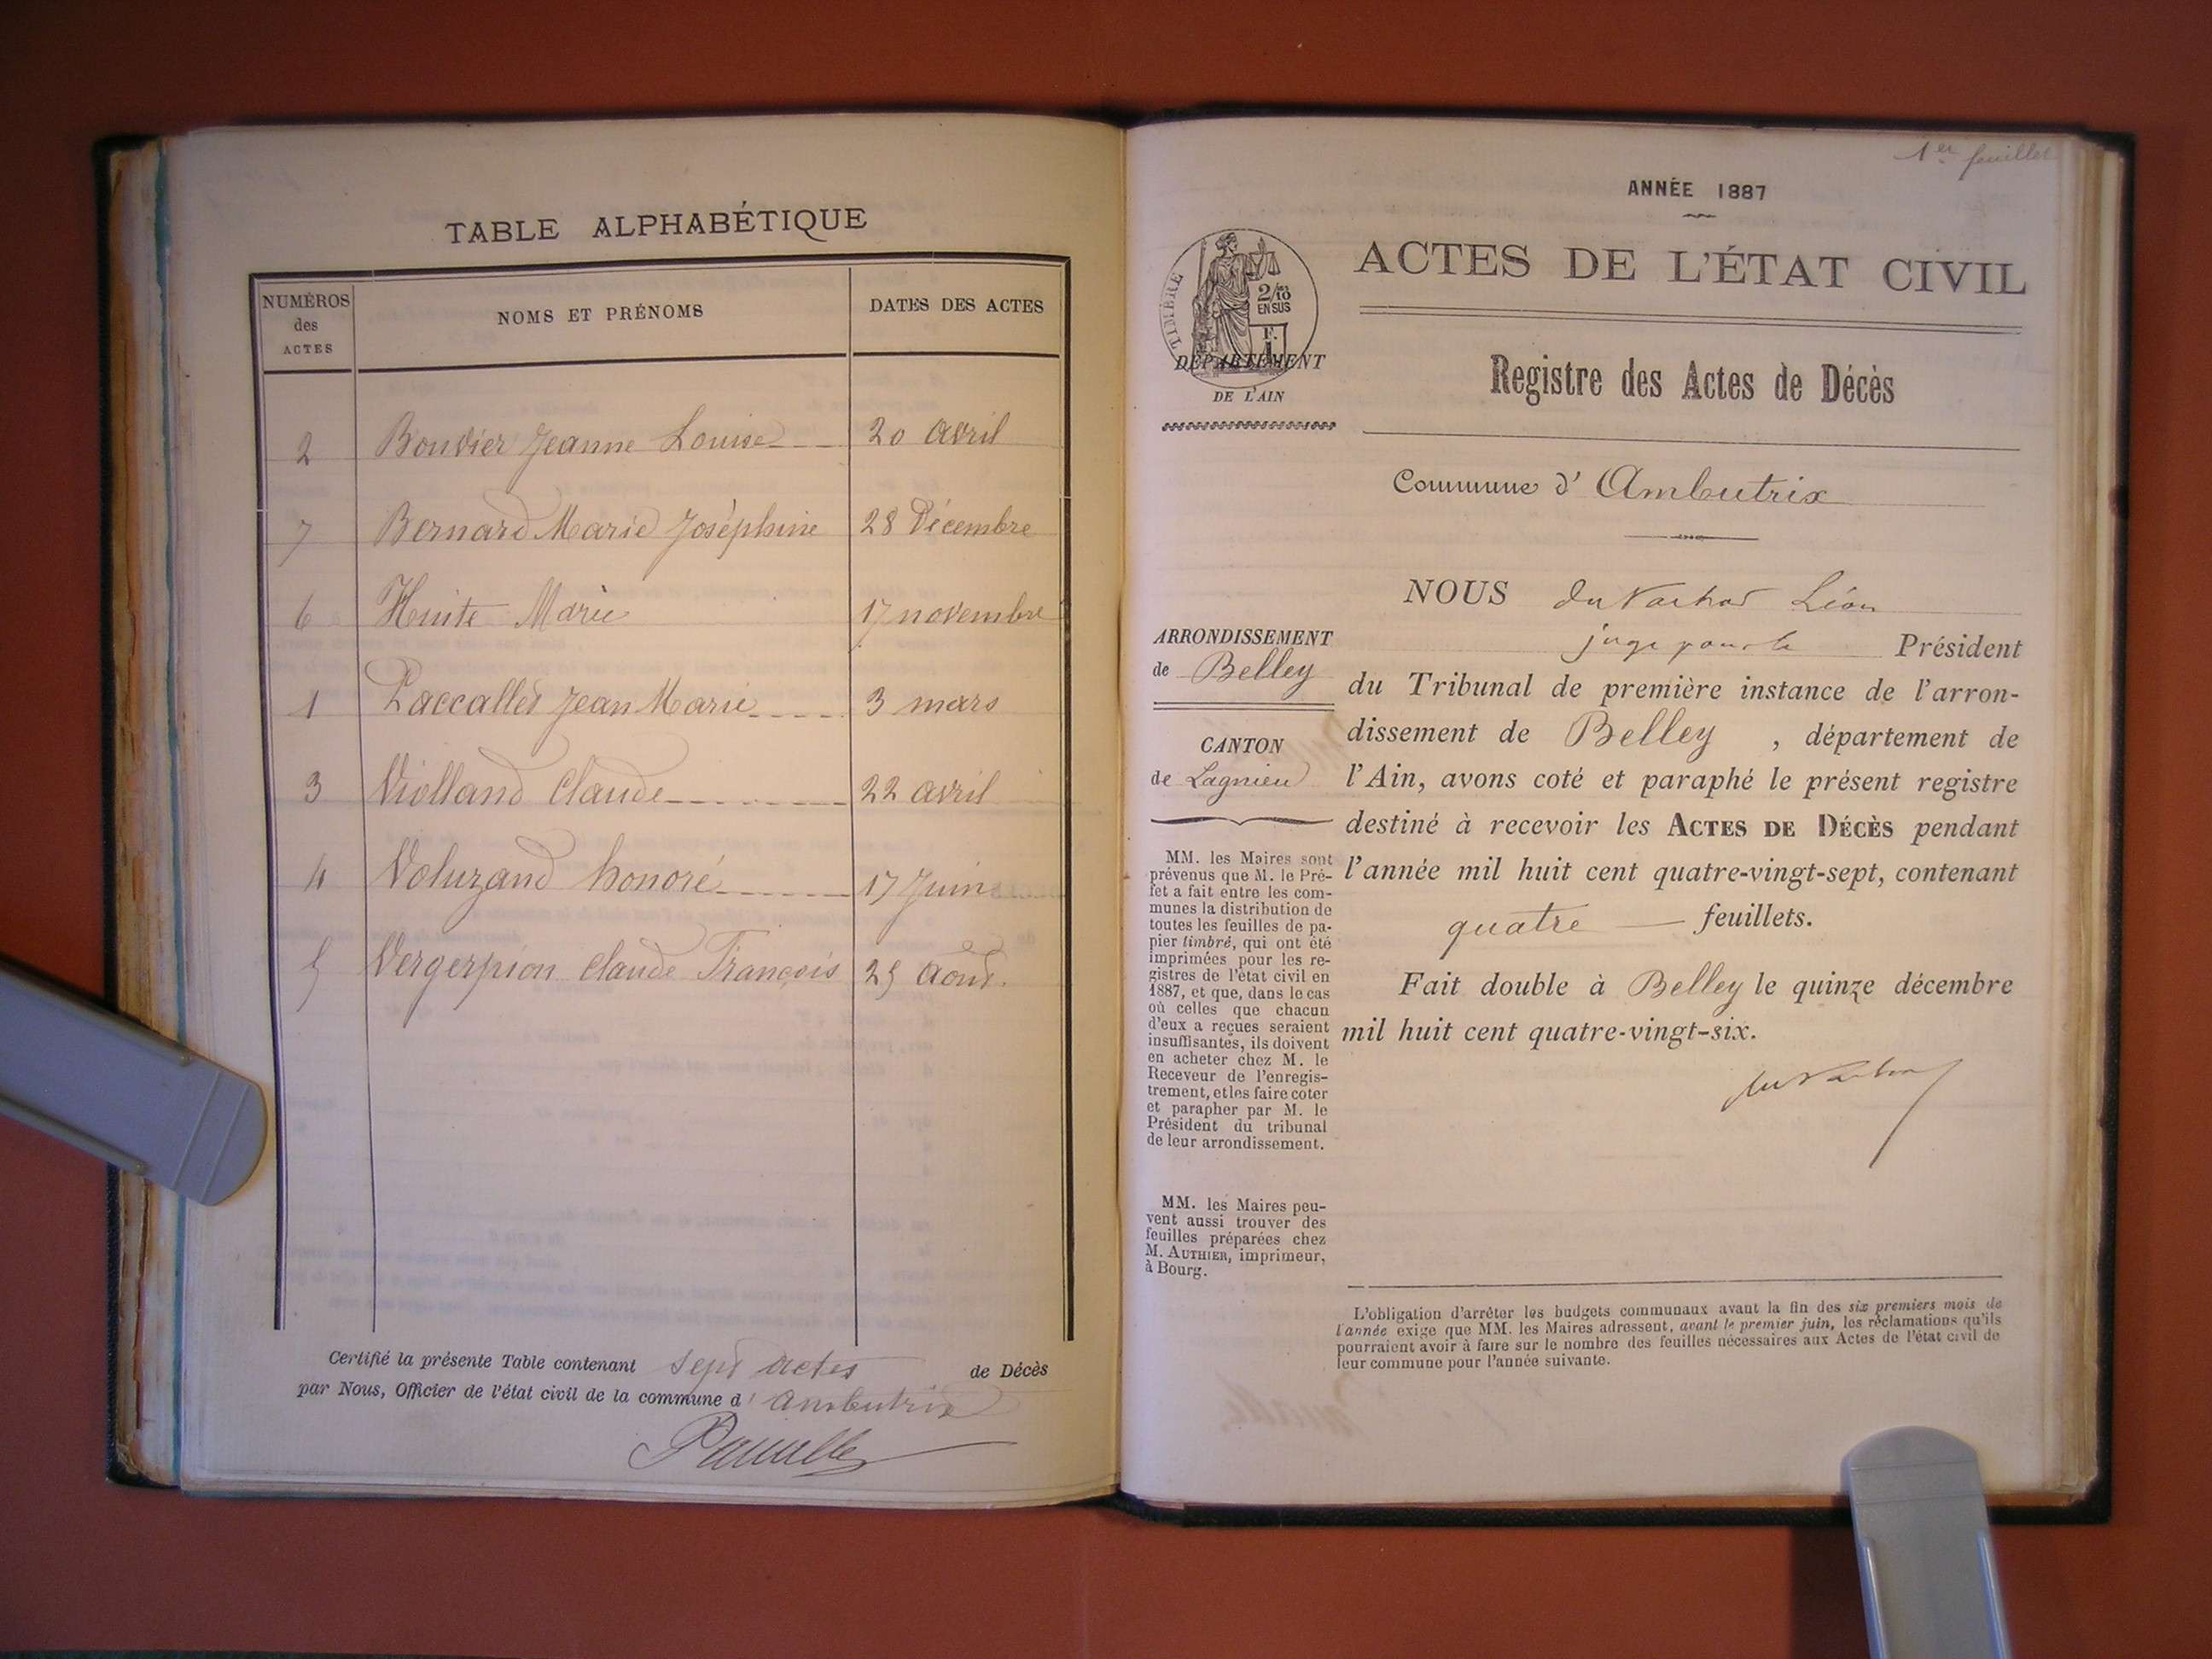 TABLE ALPHABÉTIQUE
NUMÉROS des ACTES
NOMS ET PRÉNOMS
DATES DES ACTES
2 Bouvier Jeanne Louise 20 avril
7 Bernard Marie Joséphine 28 Décembre
6 Huite Marie 17 novembre
1 Paccallet Jean Marie 3 mars
3 Violland Claude 22 avril
4 Voluzand honoré 17 Juin
5 Vergerpion Claude François 25 Août.
Certifié la présente Table contenant sept actes de Décès
par Nous, Officier de l'état civil de la commune d'Ambutrix
1er feuillet
ANNÉE 1887
ACTES DE L'ÉTAT CIVIL
TIMBRE
2/10
EN SUS
F.
1
DÉPARTEMENT
DE L'AIN
Registre des Actes de Décès
Commune d'Ambutrix
ARRONDISSEMENT
de Belley
CANTON
de Lagnieu
MM. les Maires sont
prévenus que M. le Pré-
fet a fait entre les com-
munes la distribution de
toutes les feuilles de pa-
pier timbré, qui ont été
imprimées pour les re-
gistres de l'état civil en
1887, et que, dans le cas
où celles que chacun
d'eux a reçues seraient
insuffisantes, ils doivent
en acheter chez M. le
Receveur de l'enregis-
trement, et les faire coter
et parapher par M. le
Président du tribunal
de leur arrondissement.
MM. les Maires peu-
vent aussi trouver des
feuilles préparées chez
M. AUTHIER, imprimeur,
à Bourg.
NOUS Léon
juge pour le Président
du Tribunal de première instance de l'arron-
dissement de Belley, département de
l'Ain, avons coté et paraphé le présent registre
destiné à recevoir les ACTES DE DÉCÈS pendant
l'année mil huit cent quatre-vingt-sept, contenant
quatre feuillets.
Fait double à Belley le quinze décembre
mil huit cent quatre-vingt-six.
L'obligation d'arrêter les budgets communaux avant la fin des six premiers mois de
l'année exige que MM. les Maires adressent, avant le premier juin, les réclamations qu'ils
pourraient avoir à faire sur le nombre des feuilles nécessaires aux Actes de l'état civil de
leur commune pour l'année suivante.